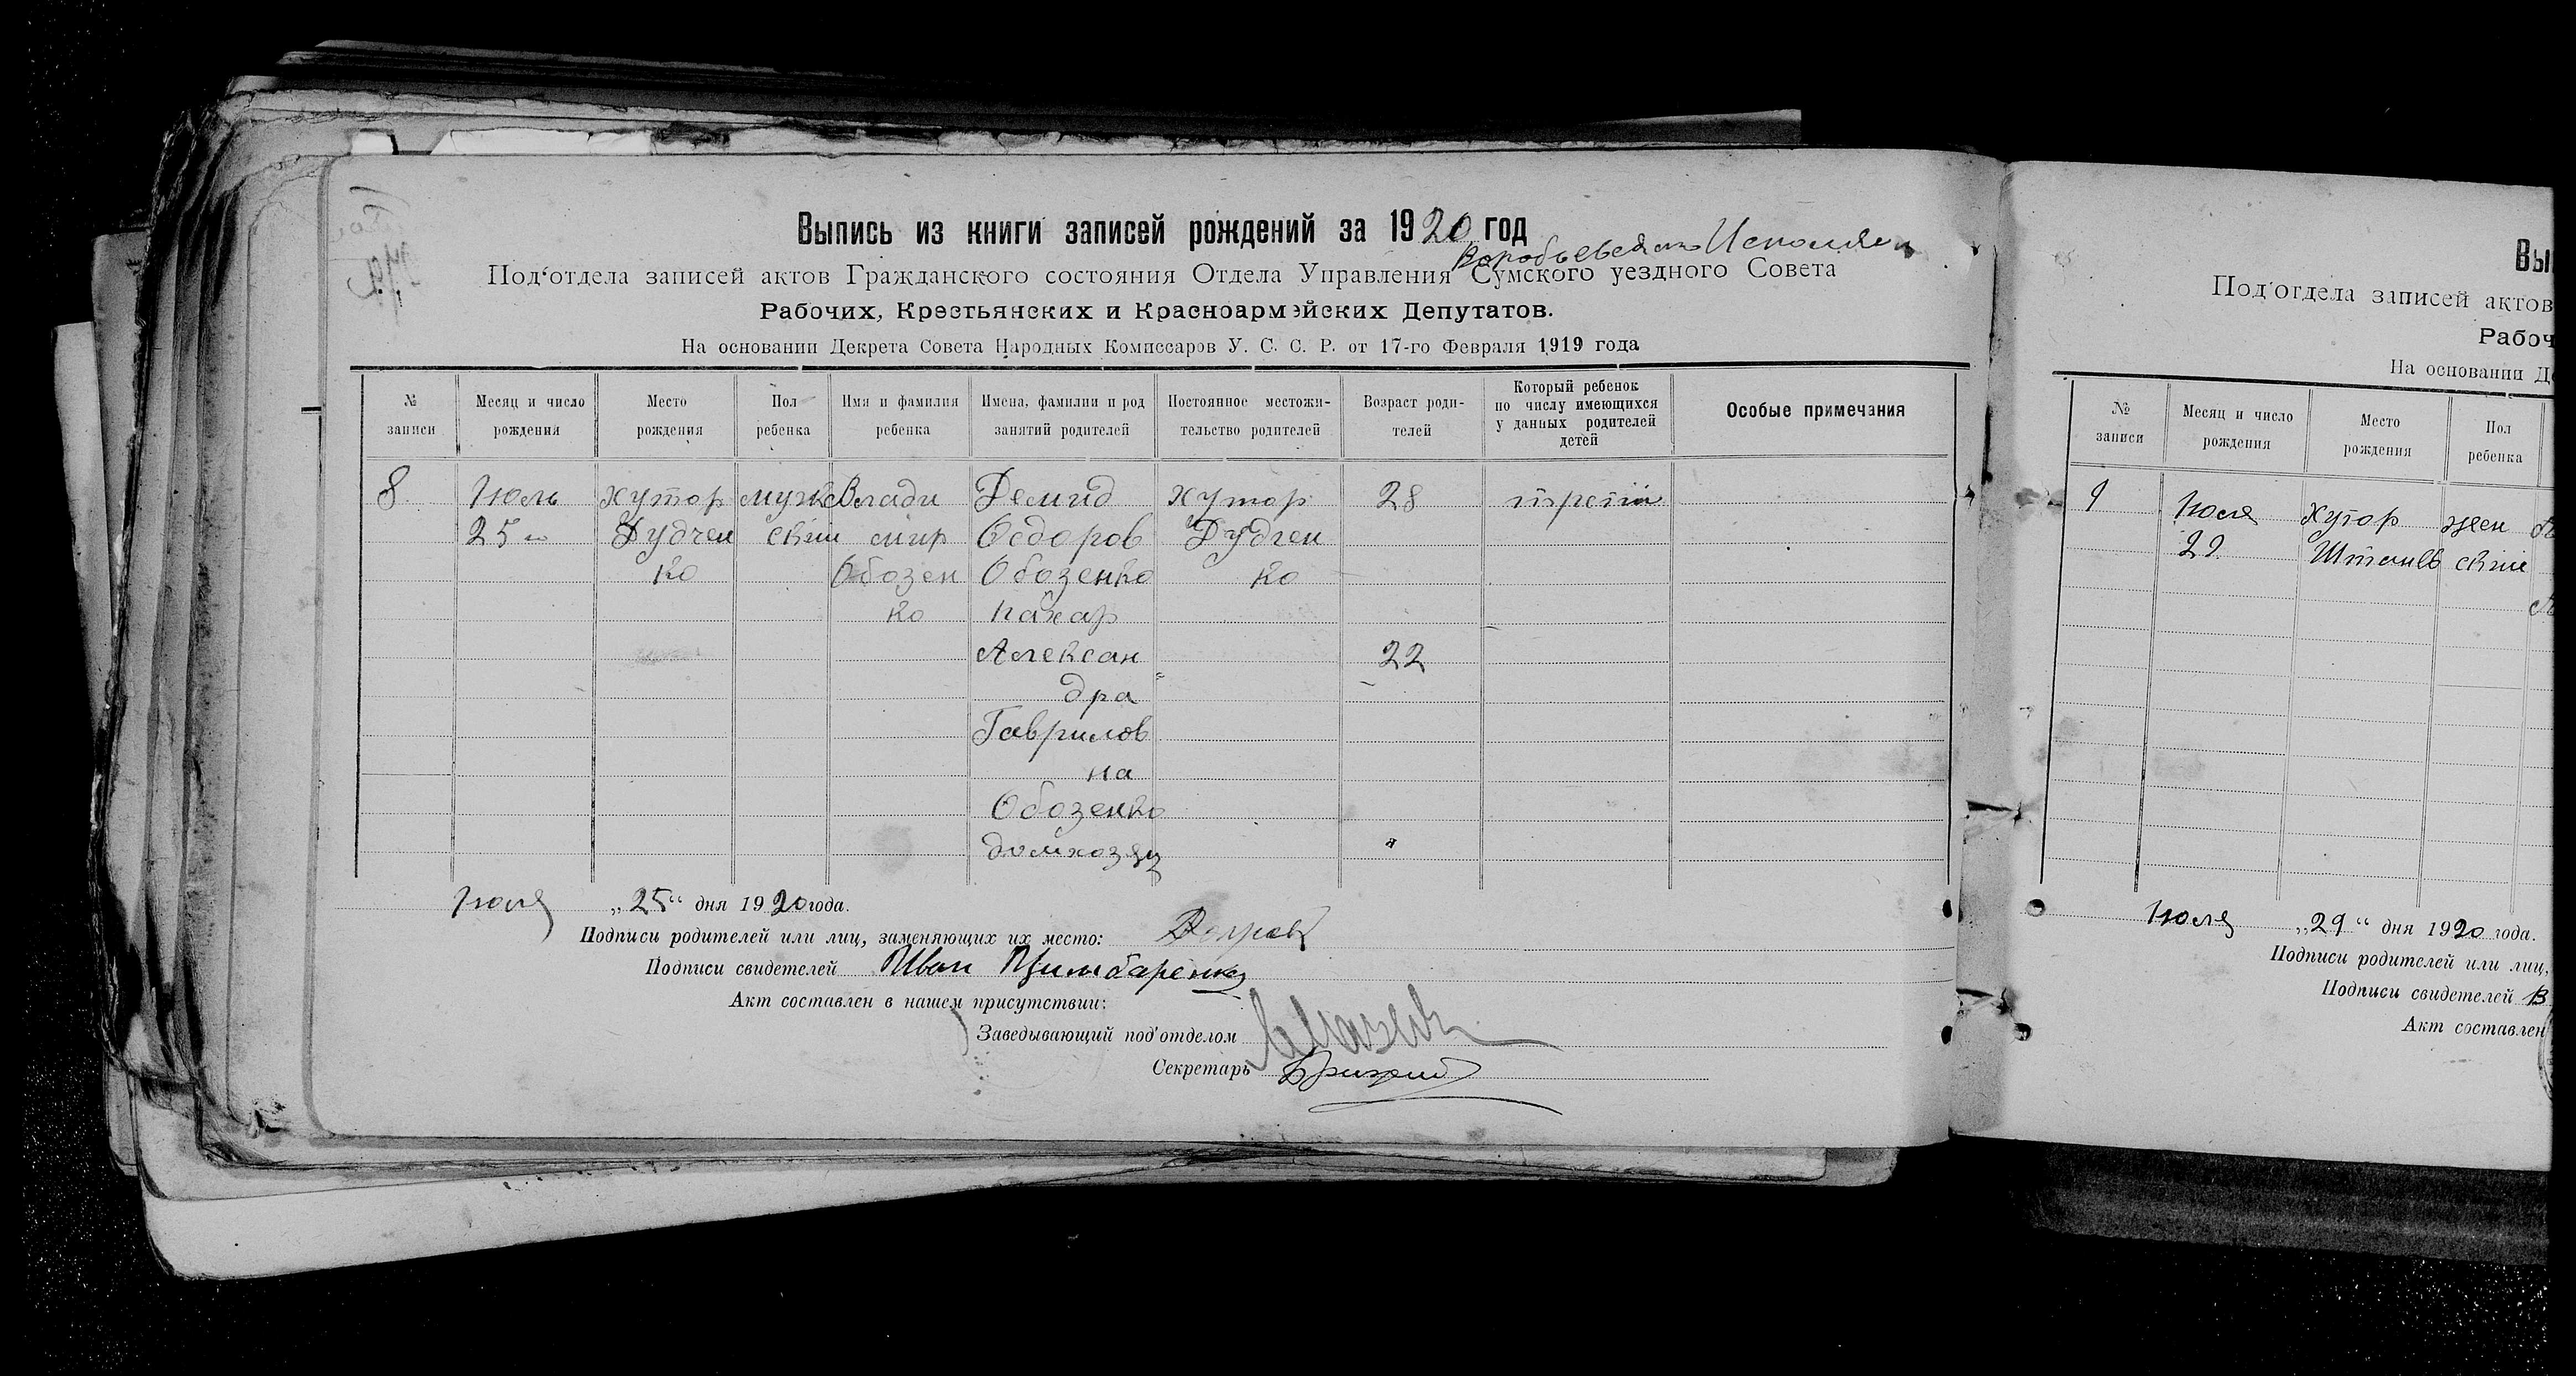 Выпись из книги записей рождений за 1920 год
Под'отдела записей актов Гражданского состояния Отдела Управления Сумского уездного Совета
Рабочих, Крестьянских и Красноармейских Депутатов.
На основании Декрета Совета Народных Комиссаров У. С. С. Р. от 17-го Февраля 1919 года
№ записи
Месяц и число рождения
Место рождения
Пол ребенка
Имя и фамилия ребенка
Имена, фамилии и род занятий родителей
Постоянное местожи-
тельство родителей
Возраст роди-
телей
Который ребенок
по числу имеющихся
у данных родителей
детей
Особые примечания
8 Июль хутор муж Влади Демид хутор 28 третий
25 Дудчен ский мир Федоров Дудчен
ко Обозен Обозенко ко
ко пахар
Алексан 22
дра
Гаврилов
на
Обозенко
домхозяц
Июля „25“ дня 1920 года.
Подписи родителей или лиц, заменяющих их место:
Подписи свидетелей Иван Цымбаренко
Акт составлен в нашем присутствии:
Заведывающий под'отделом
Секретарь
Вы
Под'отдела записей актов
Рабоч
На основании Де
№ записи
Месяц и число рождения
Место рождения
Пол ребенка
9 Июля хутор жен
29 Штанив ский
Июля „29“ дня 1920 года.
Подписи родителей или лиц,
Подписи свидетелей В
Акт составлен